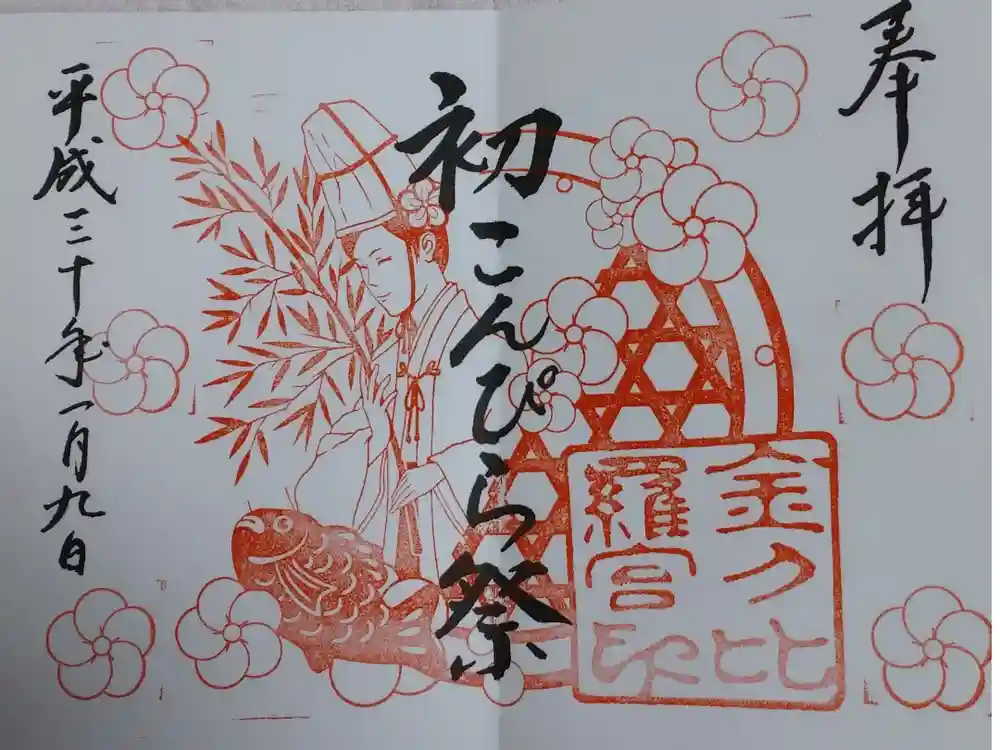 奉拝
初こんぴら祭
金刀比
羅宮印
平成三十年一月九日